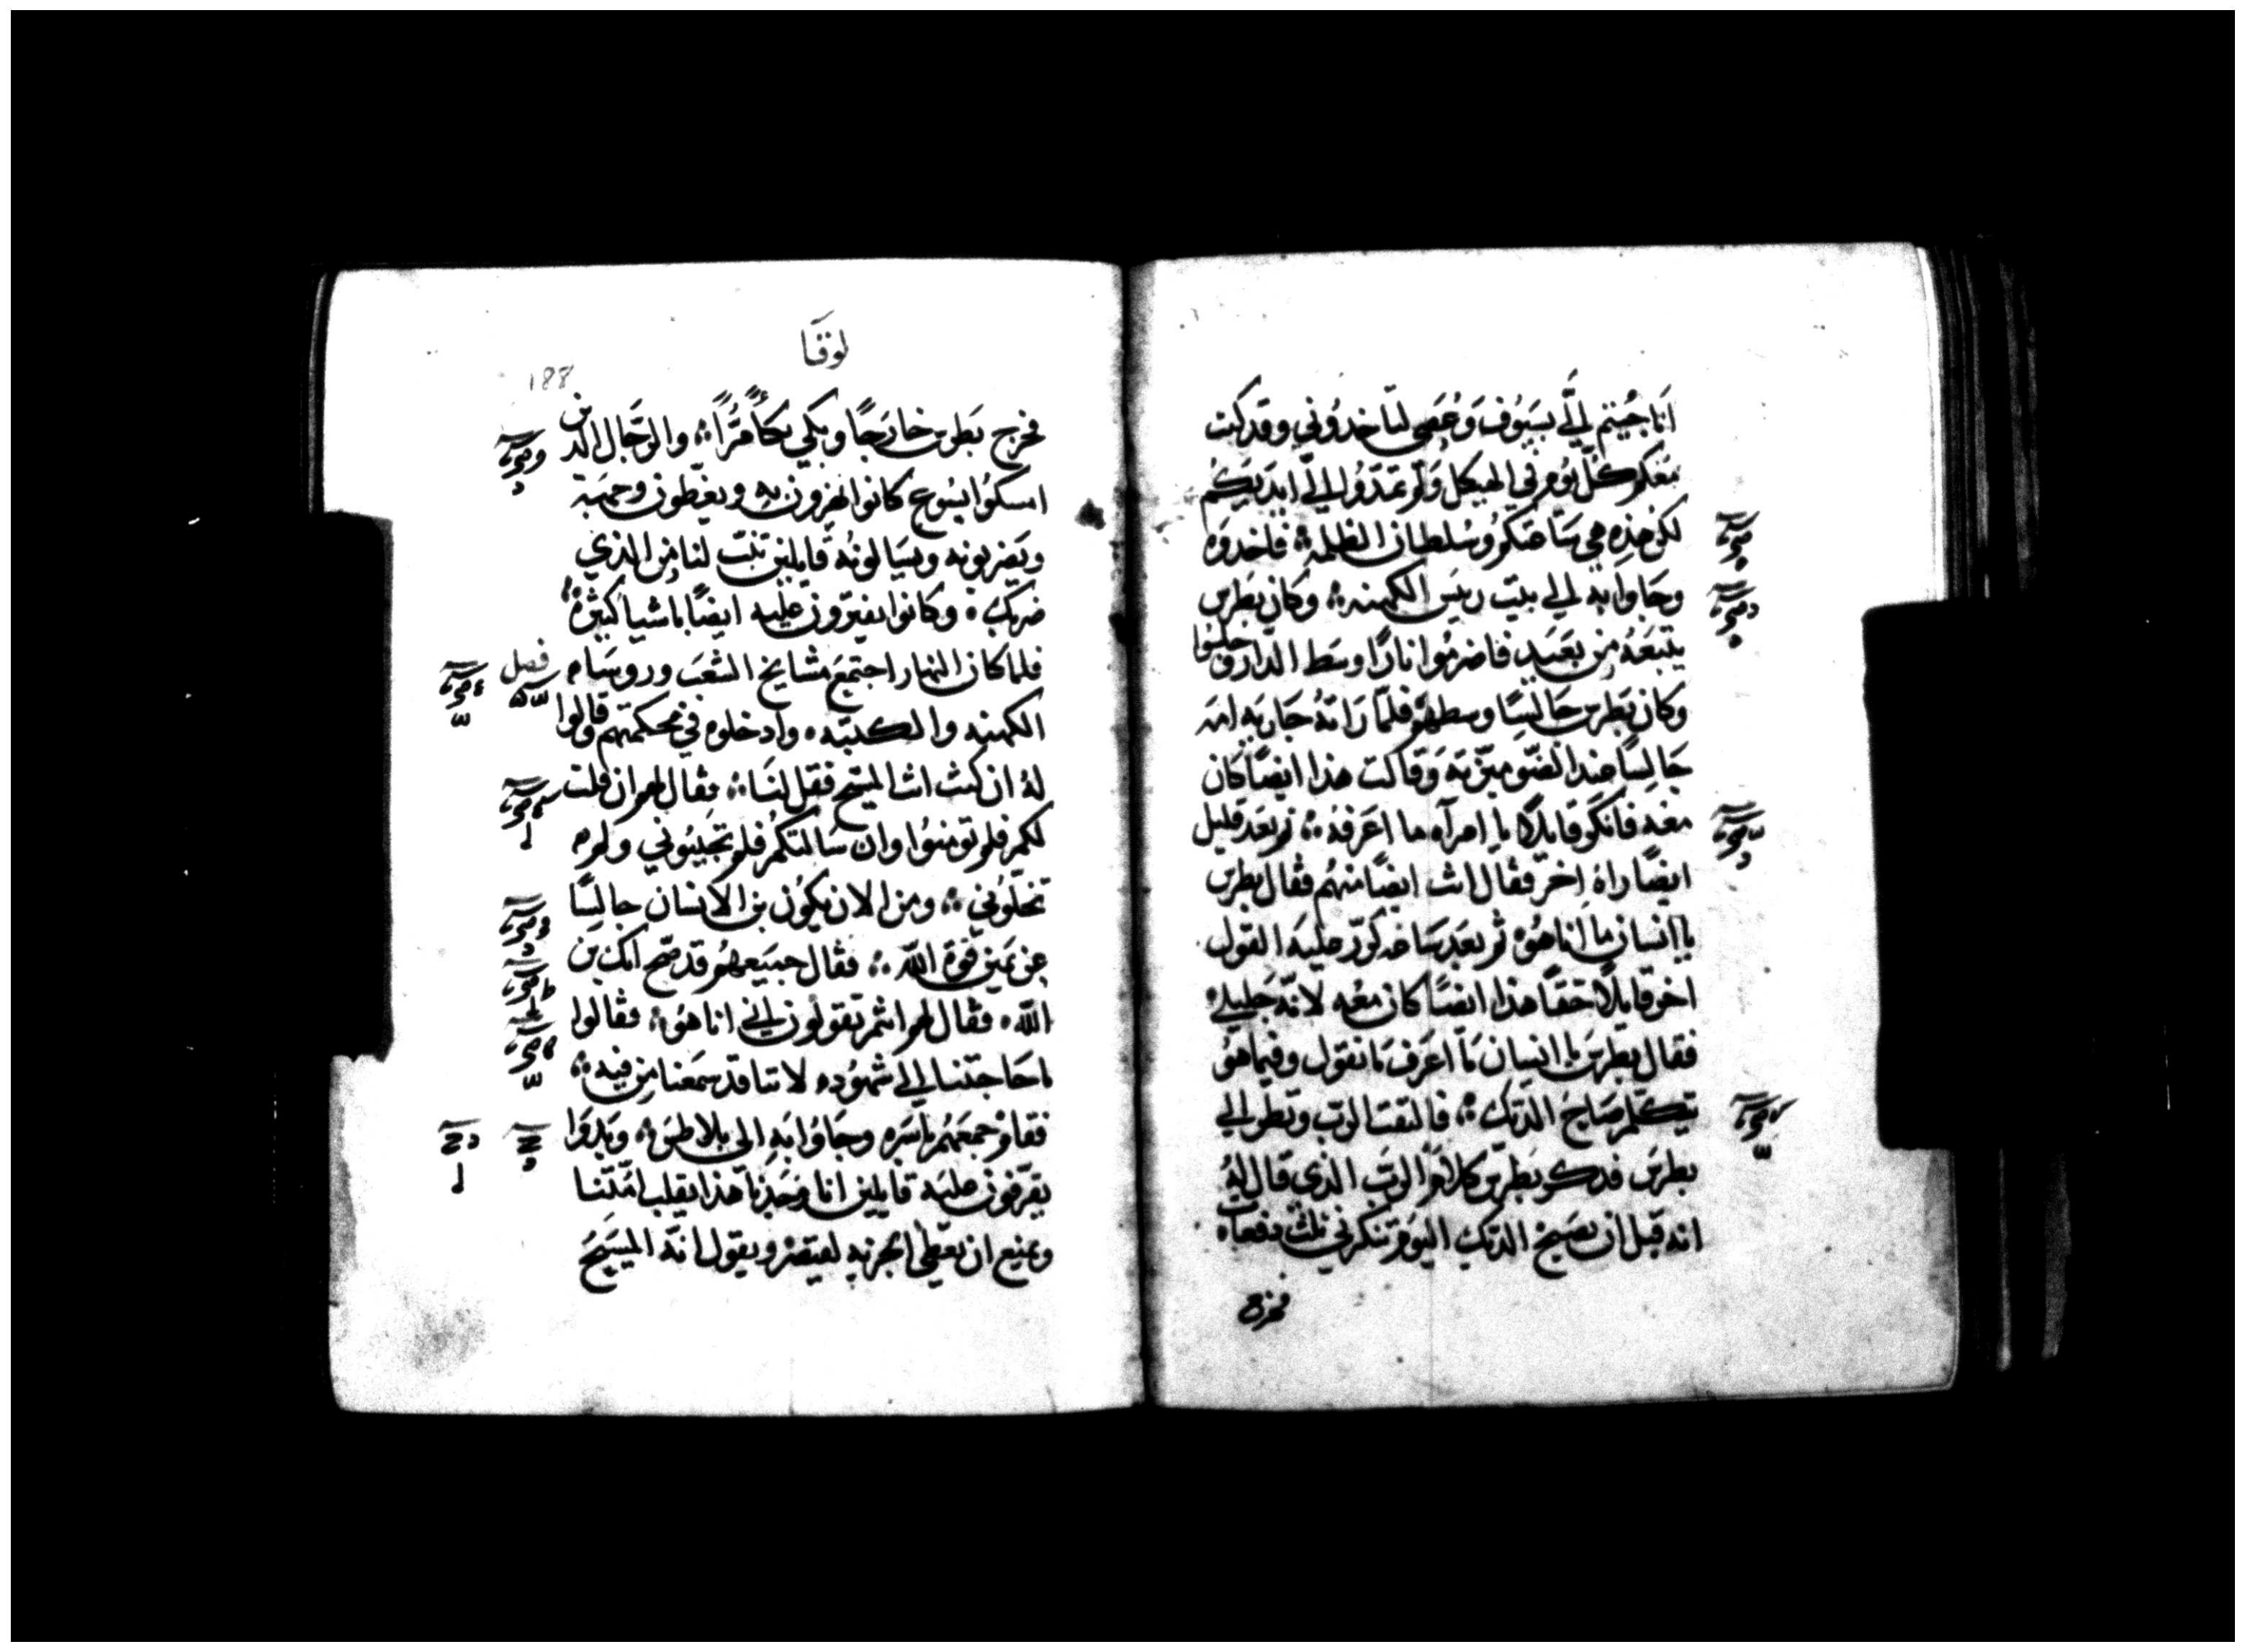 انا جُيتم اِلَّي بسَيُوف وَعُصي لتاخدُوني وقد كنت
مَعَكم كُل يَوُم في الهيكل وَلم تمَدّوُا اِلَّي ايدَيكُم
لكن هذِه هي سَاعتكم وَسُلطان الظلمه ؛ فاخدوَه
وجَاوا به اِلي بيت ريَس الكهنه ؛ وَكان بَطرس
يتبَعَهُ مِن بعَيد فاضرمُوا نارًا وسَط الدار وَجلسُوا
وَكان بَطرس جَالسًِا وسطهم فلمّا رَاتهُ جَاريه امَه
جَالِسًا عِندا لضَّو ميّزته وَقالت هذا ايضًا كان
معَه فانكَر قايلاً يا امرآه ما اعَرفهُ ؛ ثم بَعَد قليل
ايضًا راهُ اخَر فقال انت ايضًا منهُم فقال بطرس
يا انسان ما انا هُو ثم بعَد سَاعَه كَورّ عليَه القول
اخر قايلاً حَقًا هذا ايضًا كان معُه لانّه جَليلي
فقال بطرس يا انسان مَا اعَرف مَا تقول وفيما هُوَ
يتكلم صَاحَ الديك ؛ فالتفتَ الرَب ونَظر الي
بطرسَ فدكر بَطرس كلامَ الرَب الذي قال لهُ
انه قبل ان يصَيح الديك اليوَم تنكرني ثلث دفعات
فخرج
لوقا
188
فخرج بَطرس خارَجًا وَبكي بكآءً مُرًّا ؛ والرّجال الدين
امسكوُا يسُوع كانوا يهزون به ويغطون وجهه
ويَضربونه ويسَالونهُ قايلين تنبّ لنا مِن الذي
ضربَك ؛ وكانوا يفترون عليَه ايضًا باشيا كثيرة
فلما كان النهار اجتمَعَ مَشايخ الشعَب وروسَاء
فصل
الكهنه والكتبَه ؛ وادخلوه في محكمتهم وقالوا
لهُ ان كنت انت المسَيح فقل لنَا ؛ فقال لهم ان قلت
لكم فلم تومنوُا وان سَالتكمُ فلم تجَيبُوني وَلم
تخلّوُني ؛ ومن الان يكوُن بن الانسان جالسًِا
عن يَمين قوة اللّه ؛ فقال جميَعهُم قد صَح انك بن
اللّه ؛ فقال لهم انتم تقولون اني انا هُو ؛ فقالوا
ما حَاجتنا اِلي شهوُد لاننا قد سمَعنا مِن فيه ؛
فقام جمعَهُم باسَره وجَاوُا بَه الى بلاطس ؛ وَبدَوا
يقرفون عليَه قايلين انا وَجَدنا هَذا يقلب امّتنا
وَيمنع ان يعَطي الجزيه لقيصَر ويقول انهُ المسَيحَ